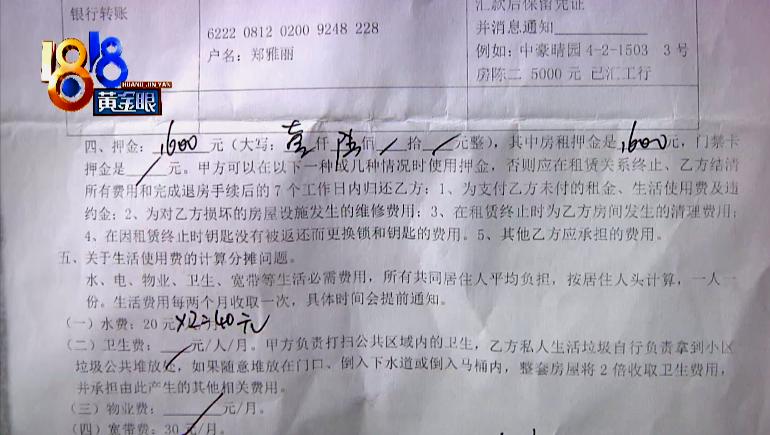 汇款后保留凭证
银行转账
并消息通知
6222 0812 0200 9248 228
户名：郑雅丽
例如：中豪晴园 4-2-1503 3 号
房陈二 5000 元 已汇工行
1818
HUANG JIN YAN
黄金眼
四、押金：1600元（大写：壹仟陆佰/拾/元整），其中房租押金是1600元，门禁卡
押金是/元。甲方可以在以下一种或几种情况时使用押金，否则应在租赁关系终止、乙方结清
所有费用和完成退房手续后的 7 个工作日内归还乙方：1、为支付乙方未付的租金、生活使用费及违
约金；2、为对乙方损坏的房屋设施发生的维修费用；3、在租赁终止时为乙方房间发生的清理费用；
4、在因租赁终止时钥匙没有被返还而更换锁和钥匙的费用。5、其他乙方应承担的费用。
五、关于生活使用费的计算分摊问题。
水、电、物业、卫生、宽带等生活必需费用，所有共同居住人平均负担，按居住人头计算，一人一
份。生活费用每两个月收取一次，具体时间会提前通知。
（一）水费：20 元×2=40元
（二）卫生费：/元/人/月。甲方负责打扫公共区域内的卫生，乙方私人生活垃圾自行负责拿到小区
垃圾公共堆放处，如果随意堆放在门口、倒入下水道或倒入马桶内，整套房屋将 2 倍收取卫生费用，
并承担由此产生的其他相关费用。
（三）物业费：/元/月。
（四）宽带费：30 元/月。